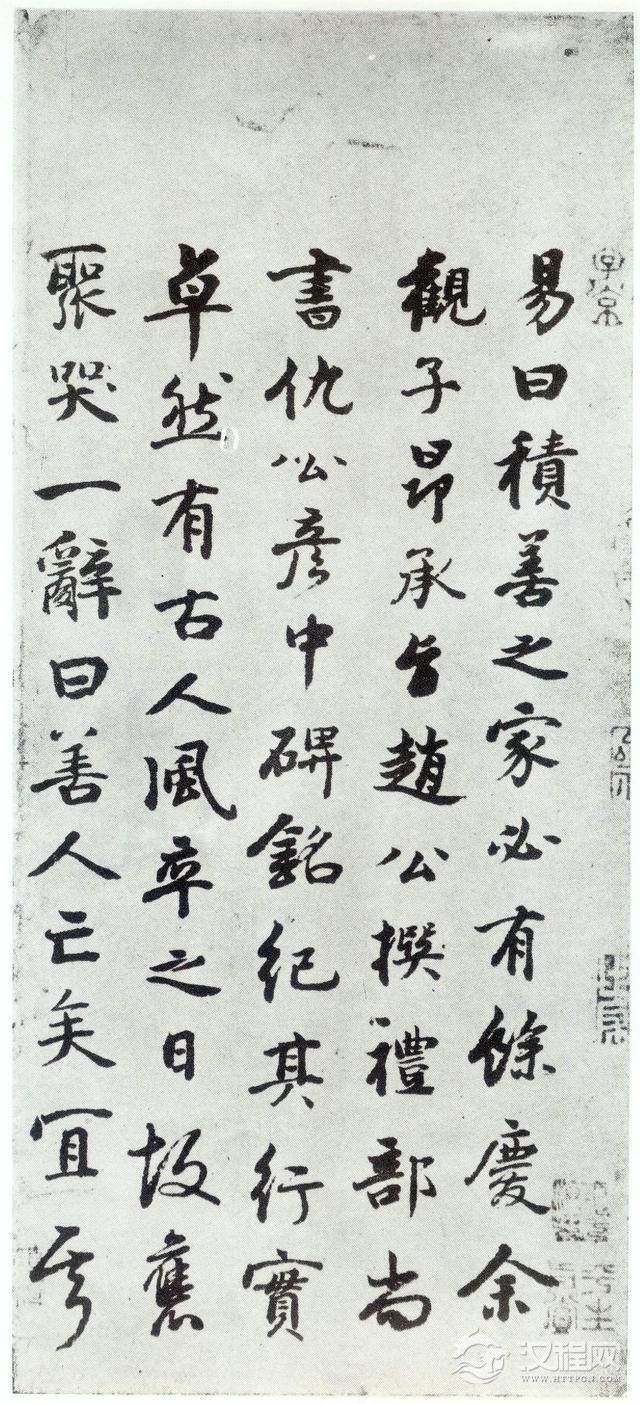 易曰積善之家必有餘慶余
觀子昂承旨趙公撰禮部尚
書仇公彥中碑銘紀其行實
卓然有古人風卒之日故舊
聚哭一辭曰善人亡矣宜其
子京
汉程网
WWW.HTTPCN.COM